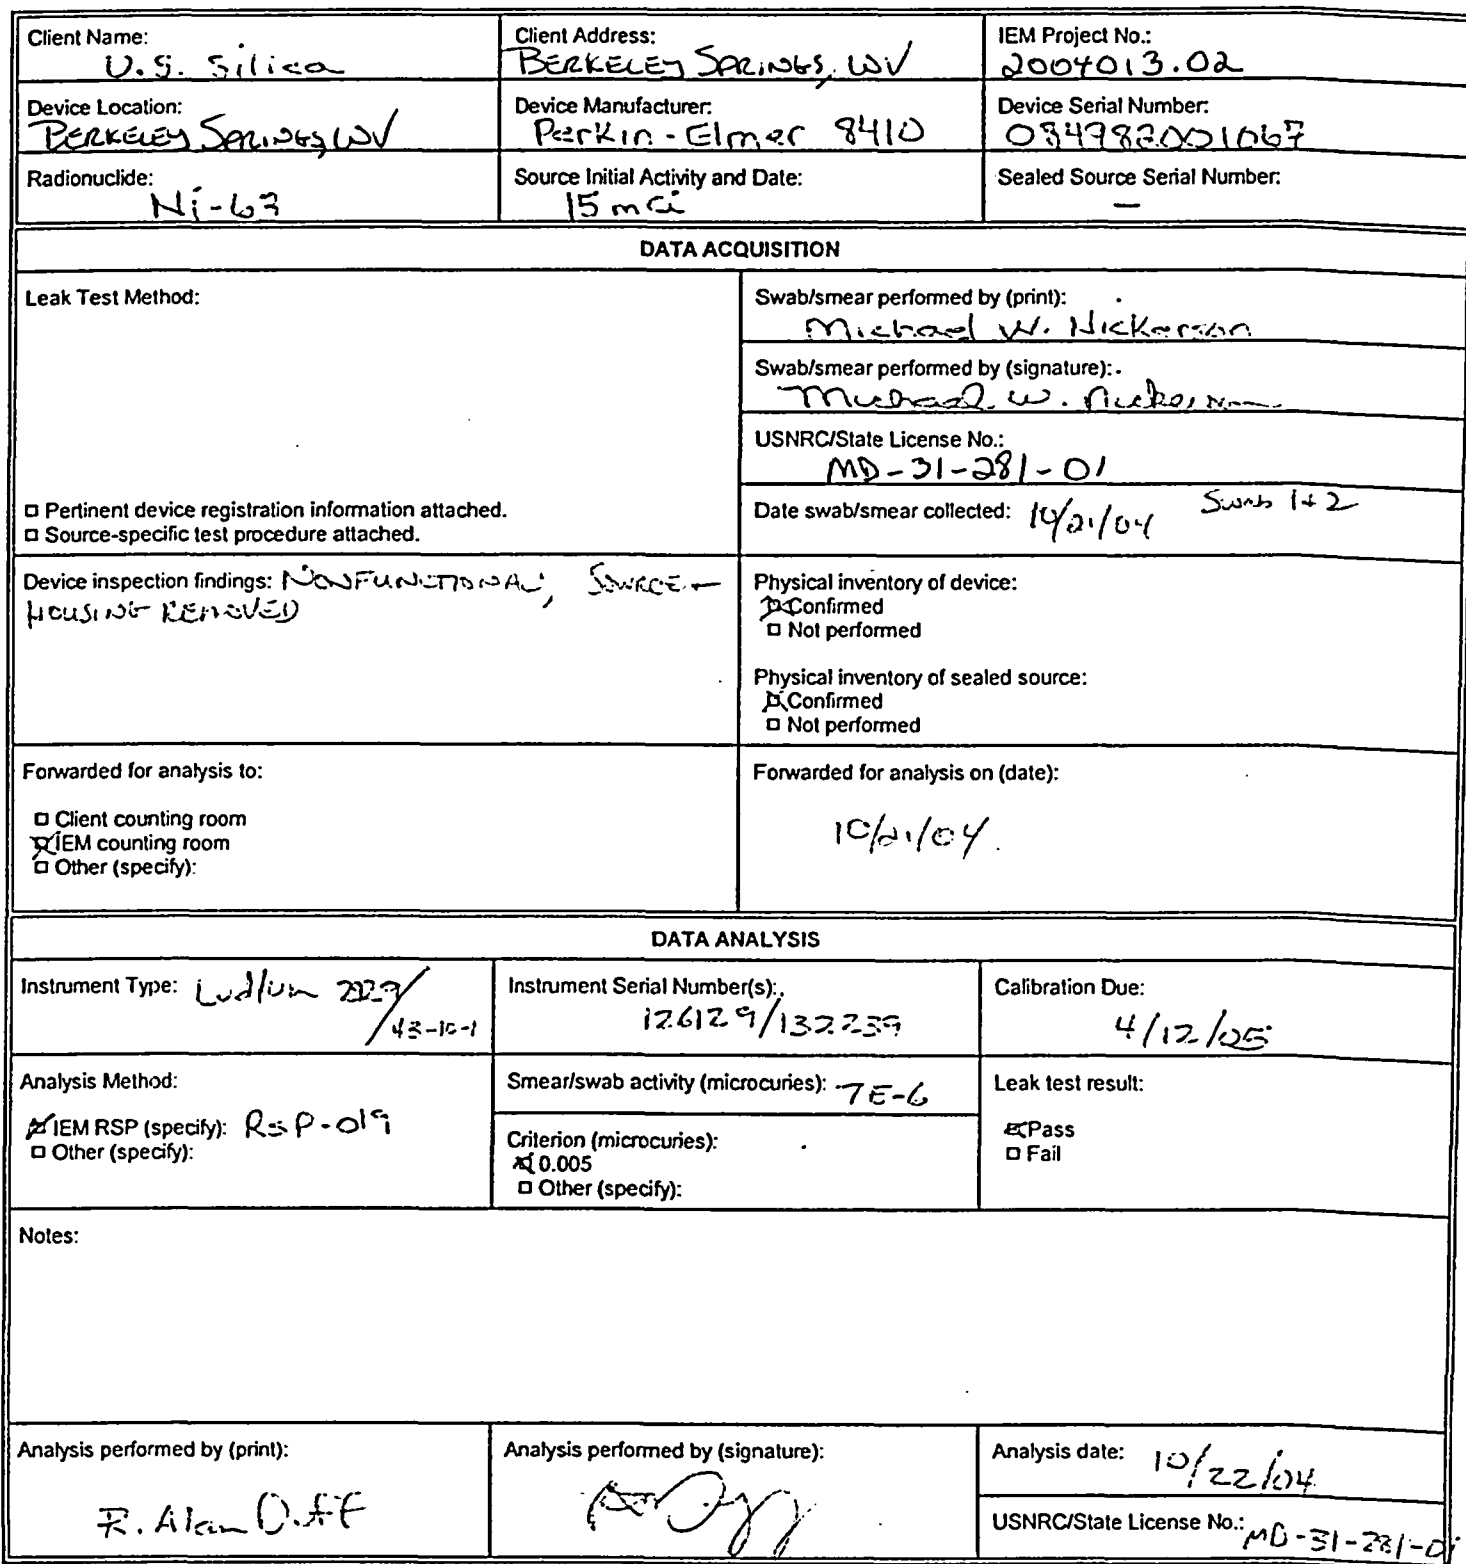 Client Name:
U.S. Silica
Client Address:
BERKELEY SPRINGS, WV
IEM Project No.:
2004013.02
Device Location:
BERKELEY SPRINGS, WV
Device Manufacturer:
Perkin-Elmer 8410
Device Serial Number:
Radionuclide:
Ni-63
Source Initial Activity and Date:
15 mCi
Sealed Source Serial Number:
—
DATA ACQUISITION
Leak Test Method:
□ Pertinent device registration information attached.
□ Source-specific test procedure attached.
Swab/smear performed by (print):
Michael W. Nickerson
Swab/smear performed by (signature):
Michael W. Nickerson
USNRC/State License No.:
MD-31-281-01
Date swab/smear collected: 10/21/04 Swab 1+2
Device inspection findings: NONFUNCTIONAL, SOURCE +
HOUSING REMOVED
Physical inventory of device:
☒ Confirmed
□ Not performed
Physical inventory of sealed source:
☒ Confirmed
□ Not performed
Forwarded for analysis to:
□ Client counting room
☒ IEM counting room
□ Other (specify):
Forwarded for analysis on (date):
10/21/04
DATA ANALYSIS
Instrument Type: Ludlum 2929/
43-10-1
Instrument Serial Number(s):
126129/132239
Calibration Due:
4/12/05
Analysis Method:
☒ IEM RSP (specify): RSP-019
□ Other (specify):
Smear/swab activity (microcuries): 7E-6
Criterion (microcuries):
☒ 0.005
□ Other (specify):
Leak test result:
☒ Pass
□ Fail
Notes:
Analysis performed by (print):
R. Alan Duff
Analysis performed by (signature):
Analysis date: 10/22/04
USNRC/State License No.: MD-31-281-01